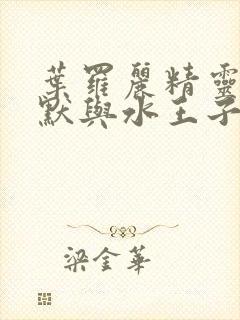 葉羅麗精靈
默與水王子
梁金華